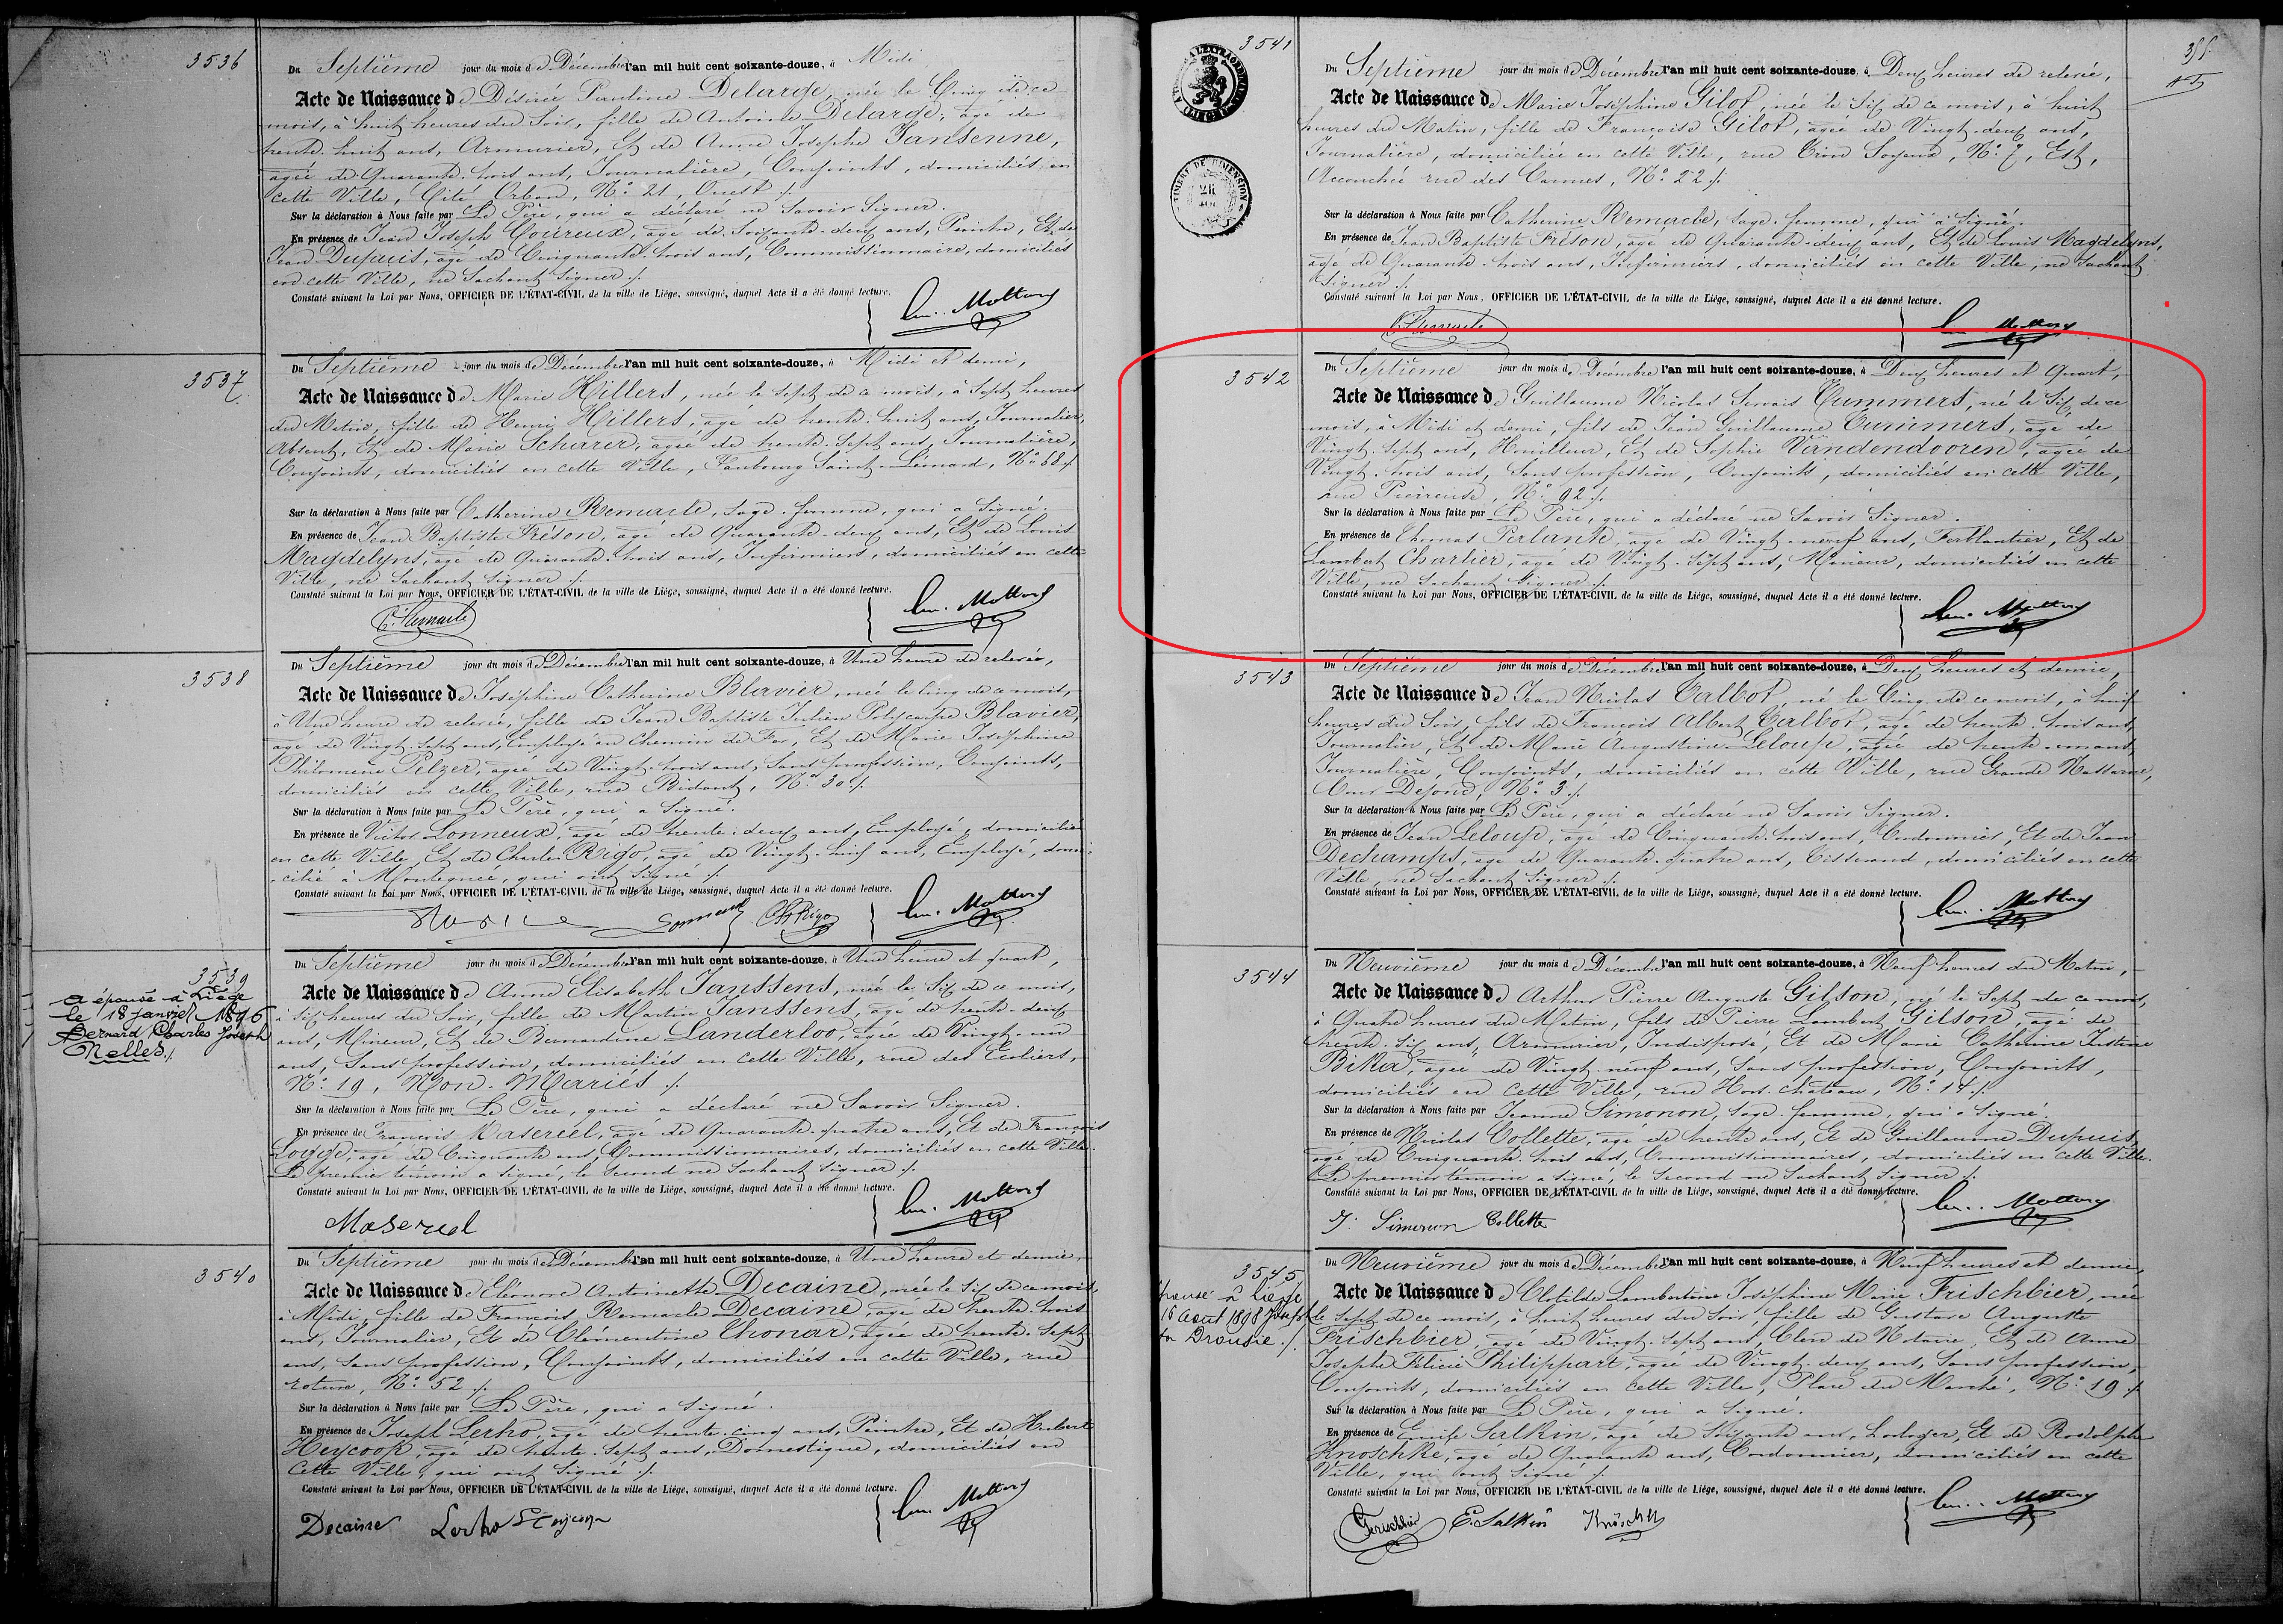 3536
Du Septième jour du mois de Décembre l'an mil huit cent soixante-douze, à Midi
Acte de Naissance de Désirée Pauline Delarge, née le Cinq de ce
mois, à huit heures du Soir, fille de Antoine Delarge, âgé de
trente-huit ans, Armurier, Et de Anne Josephe Jansenne,
agée de Quarante-trois ans, Journalière, Conjoints, domiciliés en
cette Ville, Cité Orban, N° 21, Ouest ./.
Sur la déclaration à Nous faite par Le Père, qui a déclaré ne Savoir Signer.
En présence de Jean Joseph Coureux, âgé de Soixante-deux ans, Peintre, Et de
Jean Dupuis, âgé de Cinquante-trois ans, Commissionnaire, domiciliés
en cette Ville, ne Sachant Signer ./.
Constaté suivant la Loi par Nous, OFFICIER DE L'ÉTAT-CIVIL de la ville de Liége, soussigné, duquel Acte il a été donné lecture.
Mottard
3537
Du Septième jour du mois de Décembre l'an mil huit cent soixante-douze, à Midi et demi,
Acte de Naissance de Marie Hillers, née le Sept de ce mois, à Sept heures
du Matin, fille de Henri Hillers, âgé de trente-huit ans, Journalier,
Absent, Et de Marie Scharer, agée de trente-Sept ans, Journalière,
Conjoints, domiciliés en cette Ville, Faubourg Saint-Léonard, N° 58 ./.
Sur la déclaration à Nous faite par Catherine Remacle, Sage-femme, qui a Signé.
En présence de Jean Baptiste Fréson, âgé de Quarante-deux ans, Et de Louis
Magdelyns, âgé de Quarante-trois ans, Infirmiers, domiciliés en cette
Ville, ne Sachant Signer ./.
Constaté suivant la Loi par Nous, OFFICIER DE L'ÉTAT-CIVIL de la ville de Liége, soussigné, duquel Acte il a été donné lecture.
C. Remacle Mottard
3538
Du Septième jour du mois de Décembre l'an mil huit cent soixante-douze, à Une heure de relevée,
Acte de Naissance de Joséphine Catherine Blavier, née le cinq de ce mois,
à Une heure de relevée, fille de Jean Baptiste Julien Polycarpe Blavier,
âgé de Vingt-Sept ans, Employé au Chemin de Fer, Et de Marie Joséphine
Philomène Pelzer, agée de Vingt-trois ans, Sans profession, Conjoints,
domiciliés en cette Ville, rue Bidaut, N° 30 ./.
Sur la déclaration à Nous faite par Le Père, qui a Signé.
En présence de Victor Lonneux, âgé de trente-deux ans, Employé, domicilié
en cette Ville, Et de Charles Rigo, âgé de Vingt-huit ans, Employé, domi-
cilié à Montegnée, qui ont Signé ./.
Constaté suivant la Loi par Nous, OFFICIER DE L'ÉTAT-CIVIL de la ville de Liége, soussigné, duquel Acte il a été donné lecture.
Ch Rigo Mottard
3539
a épousé à Liége
le 18 janvier 1896
Bernard Charles Joseph
Nelles ./.
Du Septième jour du mois de Décembre l'an mil huit cent soixante-douze, à Une heure et quart,
Acte de Naissance de Anne Elisabeth Janssens, née le Six de ce mois,
à Six heures du Soir, fille de Martin Janssens, âgé de trente-deux
ans, Mineur, Et de Bernardine Landerloo, agée de Vingt-un
ans, Sans profession, domiciliés en cette Ville, rue des Ecoliers,
N° 19, Non-Mariés ./.
Sur la déclaration à Nous faite par Le Père, qui a déclaré ne Savoir Signer.
En présence de François Masereel, âgé de Quarante-quatre ans, Et de François
Logge, âgé de Cinquante ans, Commissionnaires, domiciliés en cette Ville.
Le premier témoin a Signé, le Second ne Sachant Signer ./.
Constaté suivant la Loi par Nous, OFFICIER DE L'ÉTAT-CIVIL de la ville de Liége, soussigné, duquel Acte il a été donné lecture.
Masereel Mottard
3540
Du Septième jour du mois de Décembre l'an mil huit cent soixante-douze, à Une heure et demie,
Acte de Naissance de Eléonore Antoinette Decaine, née le Six de ce mois,
à Midi, fille de François Remacle Decaine, âgé de trente-trois
ans, Journalier, Et de Clémentine Chonar, agée de trente-Sept
ans, Sans profession, Conjoints, domiciliés en cette Ville, rue
roture, N° 52 ./.
Sur la déclaration à Nous faite par Le Père, qui a Signé.
En présence de Joseph Lerho, âgé de trente-cinq ans, Peintre, Et de Hubert
Heycoop, âgé de trente-Sept ans, Domestique, domiciliés en
cette Ville, qui ont Signé ./.
Constaté suivant la Loi par Nous, OFFICIER DE L'ÉTAT-CIVIL de la ville de Liége, soussigné, duquel Acte il a été donné lecture.
Decaine Lerho Heycoop Mottard
3541
TIMBRE DE DIMENSION
Du Septième jour du mois de Décembre l'an mil huit cent soixante-douze, à Deux heures de relevée,
Acte de Naissance de Marie Joséphine Gilot, née le Six de ce mois, à huit
heures du Matin, fille de Françoise Gilot, agée de Vingt-deux ans,
Journalière, domiciliée en cette Ville, rue Grond Soyeux, N° 7, Est,
Accouchée rue des Carmes, N° 22 ./.
Sur la déclaration à Nous faite par Catherine Remacle, Sage-femme, qui a Signé.
En présence de Jean Baptiste Fréson, âgé de Quarante-deux ans, Et de Louis Magdelyns,
âgé de Quarante-trois ans, Infirmiers, domiciliés en cette Ville, ne Sachant
Signer ./.
Constaté suivant la Loi par Nous, OFFICIER DE L'ÉTAT-CIVIL de la ville de Liége, soussigné, duquel Acte il a été donné lecture.
C. Remacle Mottard
3542
Du Septième jour du mois de Décembre l'an mil huit cent soixante-douze, à Deux heures et Quart,
Acte de Naissance de Guillaume Nicolas Servais Cummers, né le Six de ce
mois, à Midi et demi, fils de Jean Guillaume Cummers, âgé de
Vingt-Sept ans, Houilleur, Et de Sophie Vandendooren, agée de
Vingt-trois ans, Sans profession, Conjoints, domiciliés en cette Ville,
rue Pierreuse, N° 92 ./.
Sur la déclaration à Nous faite par Le Père, qui a déclaré ne Savoir Signer.
En présence de Thomas Perlante, âgé de Vingt-neuf ans, Ferblantier, Et de
Lambert Charlier, âgé de Vingt-Sept ans, Mineur, domiciliés en cette
Ville, ne Sachant Signer ./.
Constaté suivant la Loi par Nous, OFFICIER DE L'ÉTAT-CIVIL de la ville de Liége, soussigné, duquel Acte il a été donné lecture.
Mottard
3543
Du Septième jour du mois de Décembre l'an mil huit cent soixante-douze, à Deux heures et demie,
Acte de Naissance de Jean Nicolas Talbot, né le Cinq de ce mois, à huit
heures du Soir, fils de François Albert Talbot, âgé de trente-trois ans,
Journalier, Et de Marie Augustine Leloup, agée de trente-un ans,
Journalière, Conjoints, domiciliés en cette Ville, rue Grande Nassarue,
Cour Defond, N° 3 ./.
Sur la déclaration à Nous faite par Le Père, qui a déclaré ne Savoir Signer.
En présence de Jean Leloup, âgé de Cinquante-trois ans, Cordonnier, Et de Jean
Dechamps, âgé de Quarante-quatre ans, Tisserand, domiciliés en cette
Ville, ne Sachant Signer ./.
Constaté suivant la Loi par Nous, OFFICIER DE L'ÉTAT-CIVIL de la ville de Liége, soussigné, duquel Acte il a été donné lecture.
Mottard
3544
Du Neuvième jour du mois de Décembre l'an mil huit cent soixante-douze, à Neuf heures du Matin,
Acte de Naissance de Arthur Pierre Auguste Gilson, né le Sept de ce mois,
à Quatre heures du Matin, fils de Pierre Lambert Gilson, âgé de
trente-Six ans, Armurier, Indisposé, Et de Marie Catherine Justine
Bika, agée de Vingt-neuf ans, Sans profession, Conjoints,
domiciliés en cette Ville, rue Hors-Château, N° 14 ./.
Sur la déclaration à Nous faite par Jeanne Simonon, Sage-femme, qui a Signé.
En présence de Nicolas Collette, âgé de trente ans, Et de Guillaume Dupuis,
âgé de Cinquante-trois ans, Commissionnaires, domiciliés en cette Ville.
Le premier témoin a Signé, le Second ne Sachant Signer ./.
Constaté suivant la Loi par Nous, OFFICIER DE L'ÉTAT-CIVIL de la ville de Liége, soussigné, duquel Acte il a été donné lecture.
J. Simonon Collette Mottard
3545
à Liége
16 Aout 1898 Joseph
Drousie ./.
Du Neuvième jour du mois de Décembre l'an mil huit cent soixante-douze, à Neuf heures et demie,
Acte de Naissance de Clotilde Lambertine Joséphine Marie Frischbier, née
le Sept de ce mois, à huit heures du Soir, fille de Gustave Auguste
Frischbier, âgé de Vingt-Sept ans, Clerc de Notaire, Et de Anne
Josephe Félicie Philippart, agée de Vingt-deux ans, Sans profession,
Conjoints, domiciliés en cette Ville, Place du Marché, N° 19 ./.
Sur la déclaration à Nous faite par Le Père, qui a Signé.
En présence de Emile Salkin, âgé de Soixante ans, horloger, Et de Rodolphe
Knoschke, âgé de Quarante ans, Cordonnier, domiciliés en cette
Ville, qui ont Signé ./.
Constaté suivant la Loi par Nous, OFFICIER DE L'ÉTAT-CIVIL de la ville de Liége, soussigné, duquel Acte il a été donné lecture.
Frischbier E. Salkin Mottard